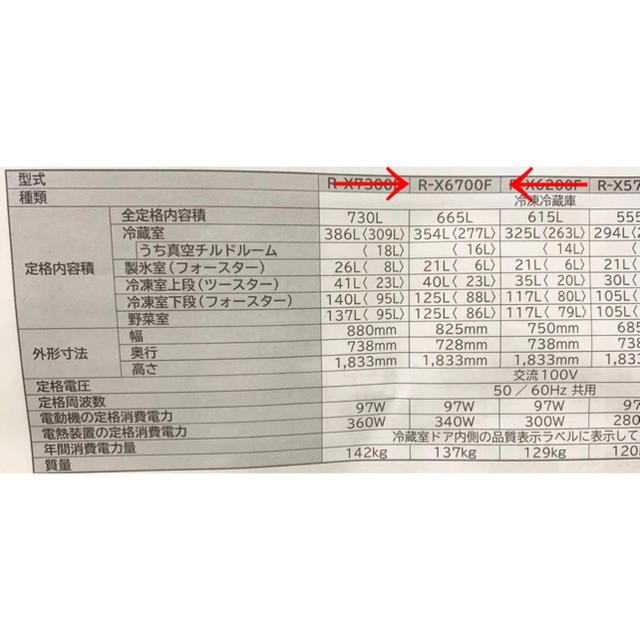 型式 R-X7300F R-X6700F R-X6200F R-X57
種類 冷凍冷蔵庫
定格内容積
全定格内容積 730L 665L 615L 555
冷蔵室 386L〈309L〉 354L〈277L〉 325L〈263L〉 294L〈2
うち真空チルドルーム 〈 18L〉 〈 16L〉 〈 14L〉 〈
製氷室(フォースター) 26L〈 8L〉 21L〈 6L〉 21L〈 6L〉 21L〈
冷凍室上段(ツースター) 41L〈 23L〉 40L〈 23L〉 35L〈 20L〉 30L〈
冷凍室下段(フォースター) 140L〈 95L〉 125L〈 88L〉 117L〈 80L〉 105L〈
野菜室 137L〈 95L〉 125L〈 86L〉 117L〈 79L〉 105L〈
外形寸法
幅 880mm 825mm 750mm 685
奥行 738mm 728mm 738mm 738
高さ 1,833mm 1,833mm 1,833mm 1,833
定格電圧 交流100V
定格周波数 50/60Hz 共用
電動機の定格消費電力 97W 97W 97W 97W
電熱装置の定格消費電力 360W 340W 300W 280
年間消費電力量 冷蔵室ドア内側の品質表示ラベルに表示して
質量 142kg 137kg 129kg 120